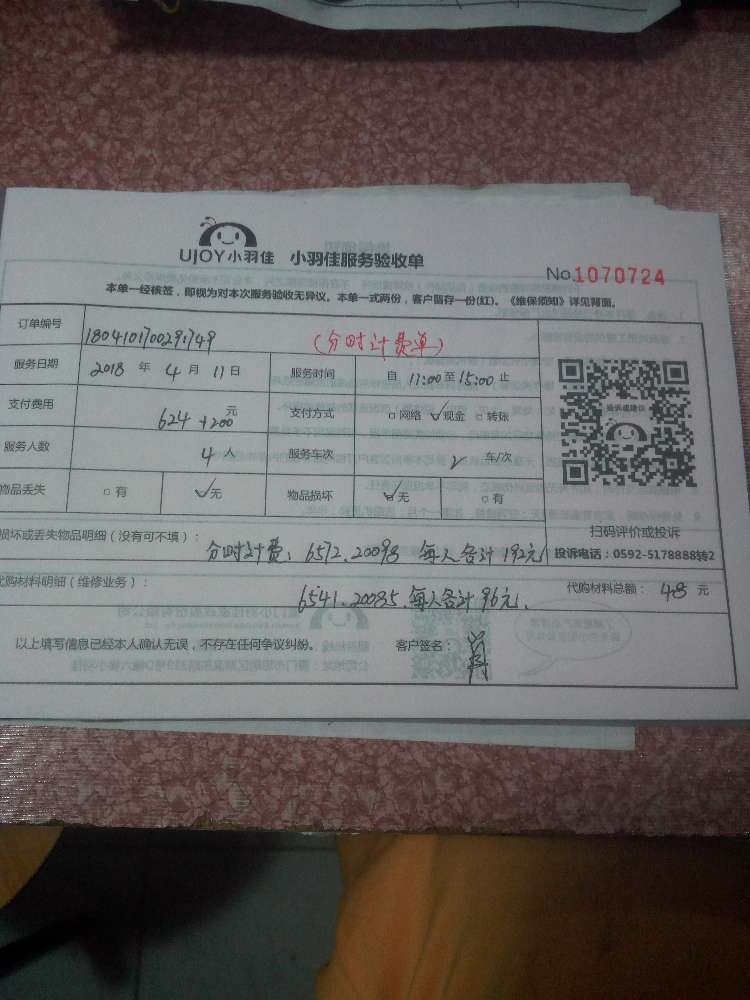 UJOY小羽佳 小羽佳服务验收单
No.1070724
本单一经核签，即视为对本次服务验收无异议。本单一式两份，客户留存一份(红)。《维保须知》详见背面。
订单编号 180410170029749 (分时计费单)
服务日期 2018 年 4 月 11 日 服务时间 自 11:00 至 15:00 止
支付费用 624+200 元 支付方式 □网络 ✓现金 □转账
服务人数 4 人 服务车次 2 车/次
物品丢失 □有 ✓无 物品损坏 ✓无 □有
投诉或建议
扫码评价或投诉
投诉电话：0592-5178888转2
损坏或丢失物品明细（没有可不填）： 分时计费：6572.20098 每人各计192元
代购材料明细（维修业务）： 6541.20085.每人各计96元.
代购材料总额： 48 元
以上填写信息已经本人确认无误，不存在任何争议纠纷。 客户签名：